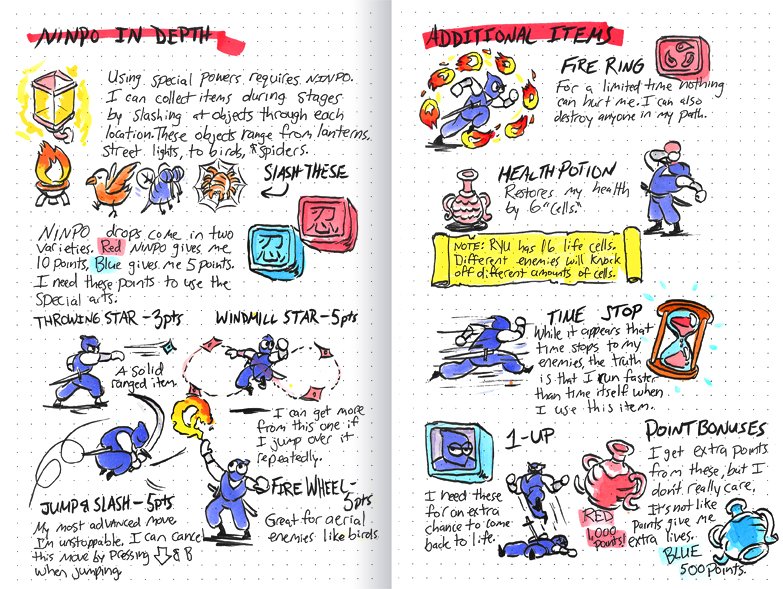 NINPO IN DEPTH
Using special powers requires NINPO.
I can collect items during stages
by slashing at objects through each
location. These objects range from lanterns,
street lights, to birds, & spiders.
SLASH THESE
忍
忍
NINPO drops come in two
varieties. Red NINPO gives me
10 points, Blue gives me 5 points.
I need these points to use the
special arts.
THROWING STAR - 3pts
A solid
ranged item.
WINDMILL STAR - 5pts
I can get more
from this one if
I jump over it
repeatedly.
JUMP & SLASH - 5pts
My most advanced move
I'm unstoppable. I can cancel
this move by pressing
when jumping.
FIRE WHEEL -
5pts
Great for aerial
enemies like birds.
ADDITIONAL ITEMS
FIRE RING
For a limited time nothing
can hurt me. I can also
destroy anyone in my path.
HEALTH POTION
Restores my health
by 6 "cells."
NOTE: RYU has 16 life cells.
Different enemies will knock
off different amounts of cells.
TIME STOP
While it appears that
time stops to my
enemies, the truth
is that I run faster
than time itself when
I use this item.
1-UP
I need these
for an extra
chance to come
back to life.
POINT BONUSES
I get extra points
from these, but I
don't really care.
It's not like
points give me
extra lives.
RED
1,000
points!
BLUE
500 points.